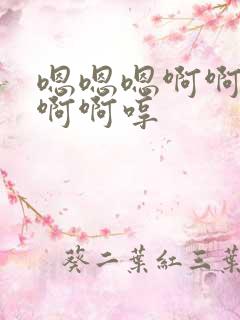 嗯嗯嗯啊啊
啊啊哼
葵二葉紅三葉